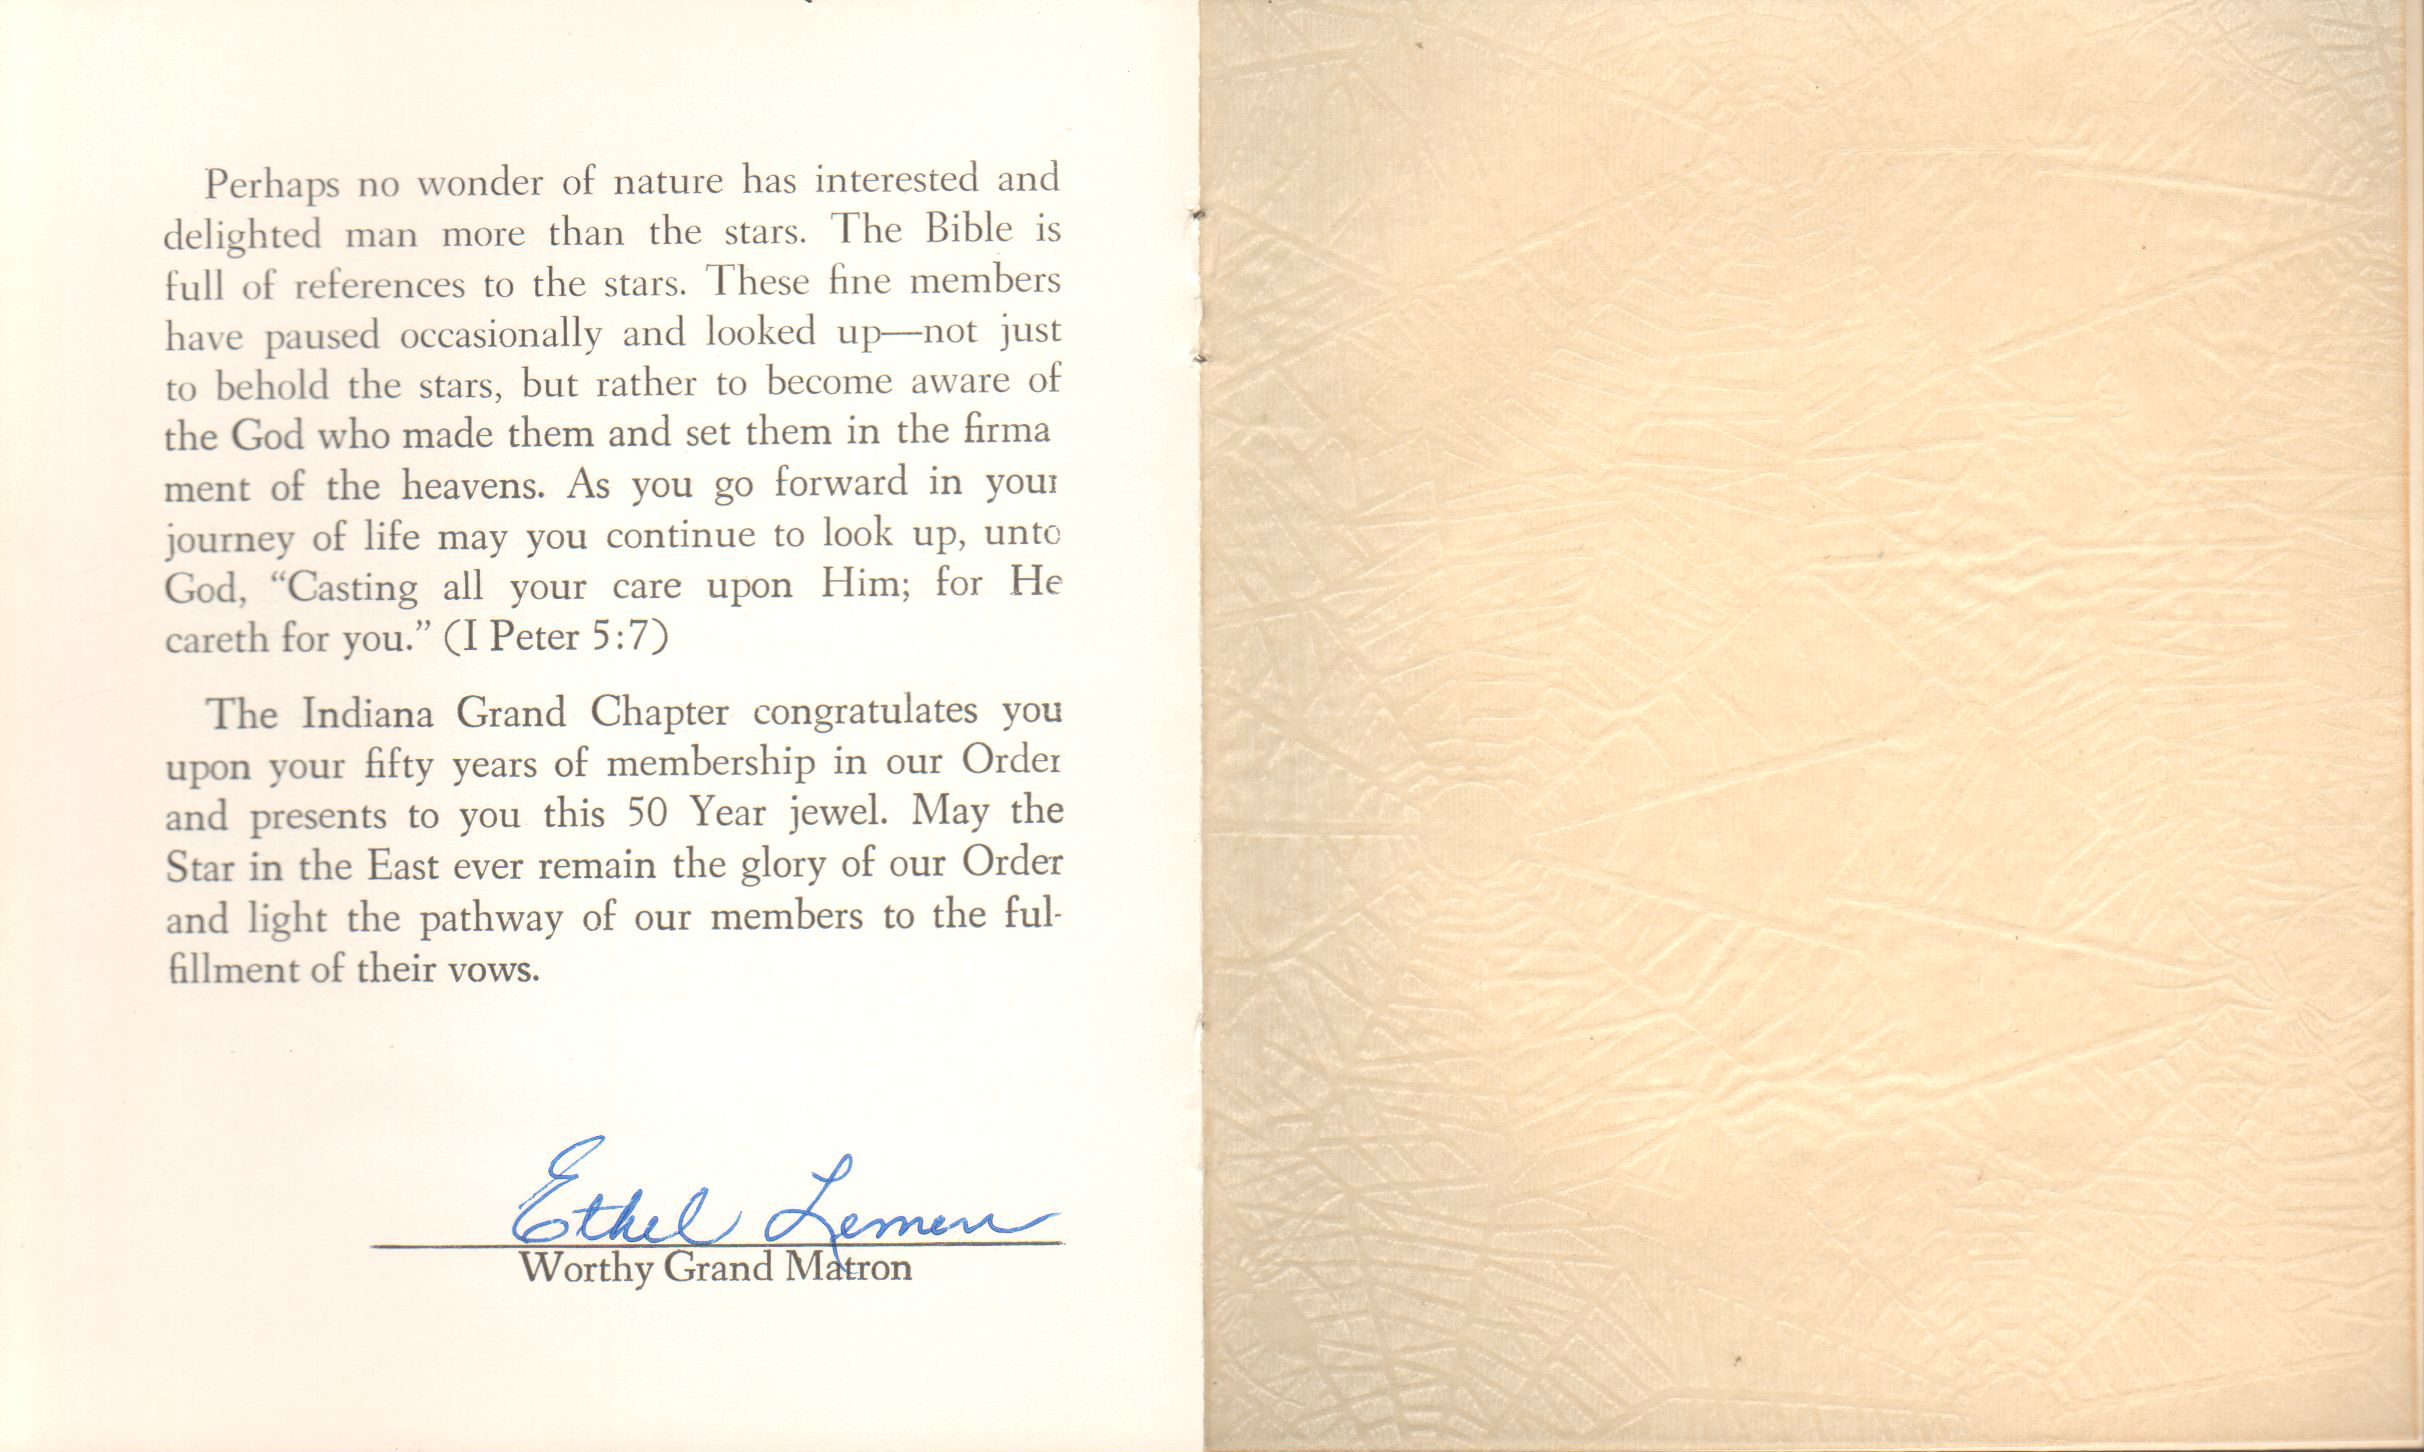 Perhaps no wonder of nature has interested and
delighted man more than the stars. The Bible is
full of references to the stars. These fine members
have paused occasionally and looked up—not just
to behold the stars, but rather to become aware of
the God who made them and set them in the firma
ment of the heavens. As you go forward in your
journey of life may you continue to look up, unto
God, “Casting all your care upon Him; for He
careth for you.” (I Peter 5:7)
The Indiana Grand Chapter congratulates you
upon your fifty years of membership in our Order
and presents to you this 50 Year jewel. May the
Star in the East ever remain the glory of our Order
and light the pathway of our members to the ful-
fillment of their vows.
Ethel Lemen
Worthy Grand Matron